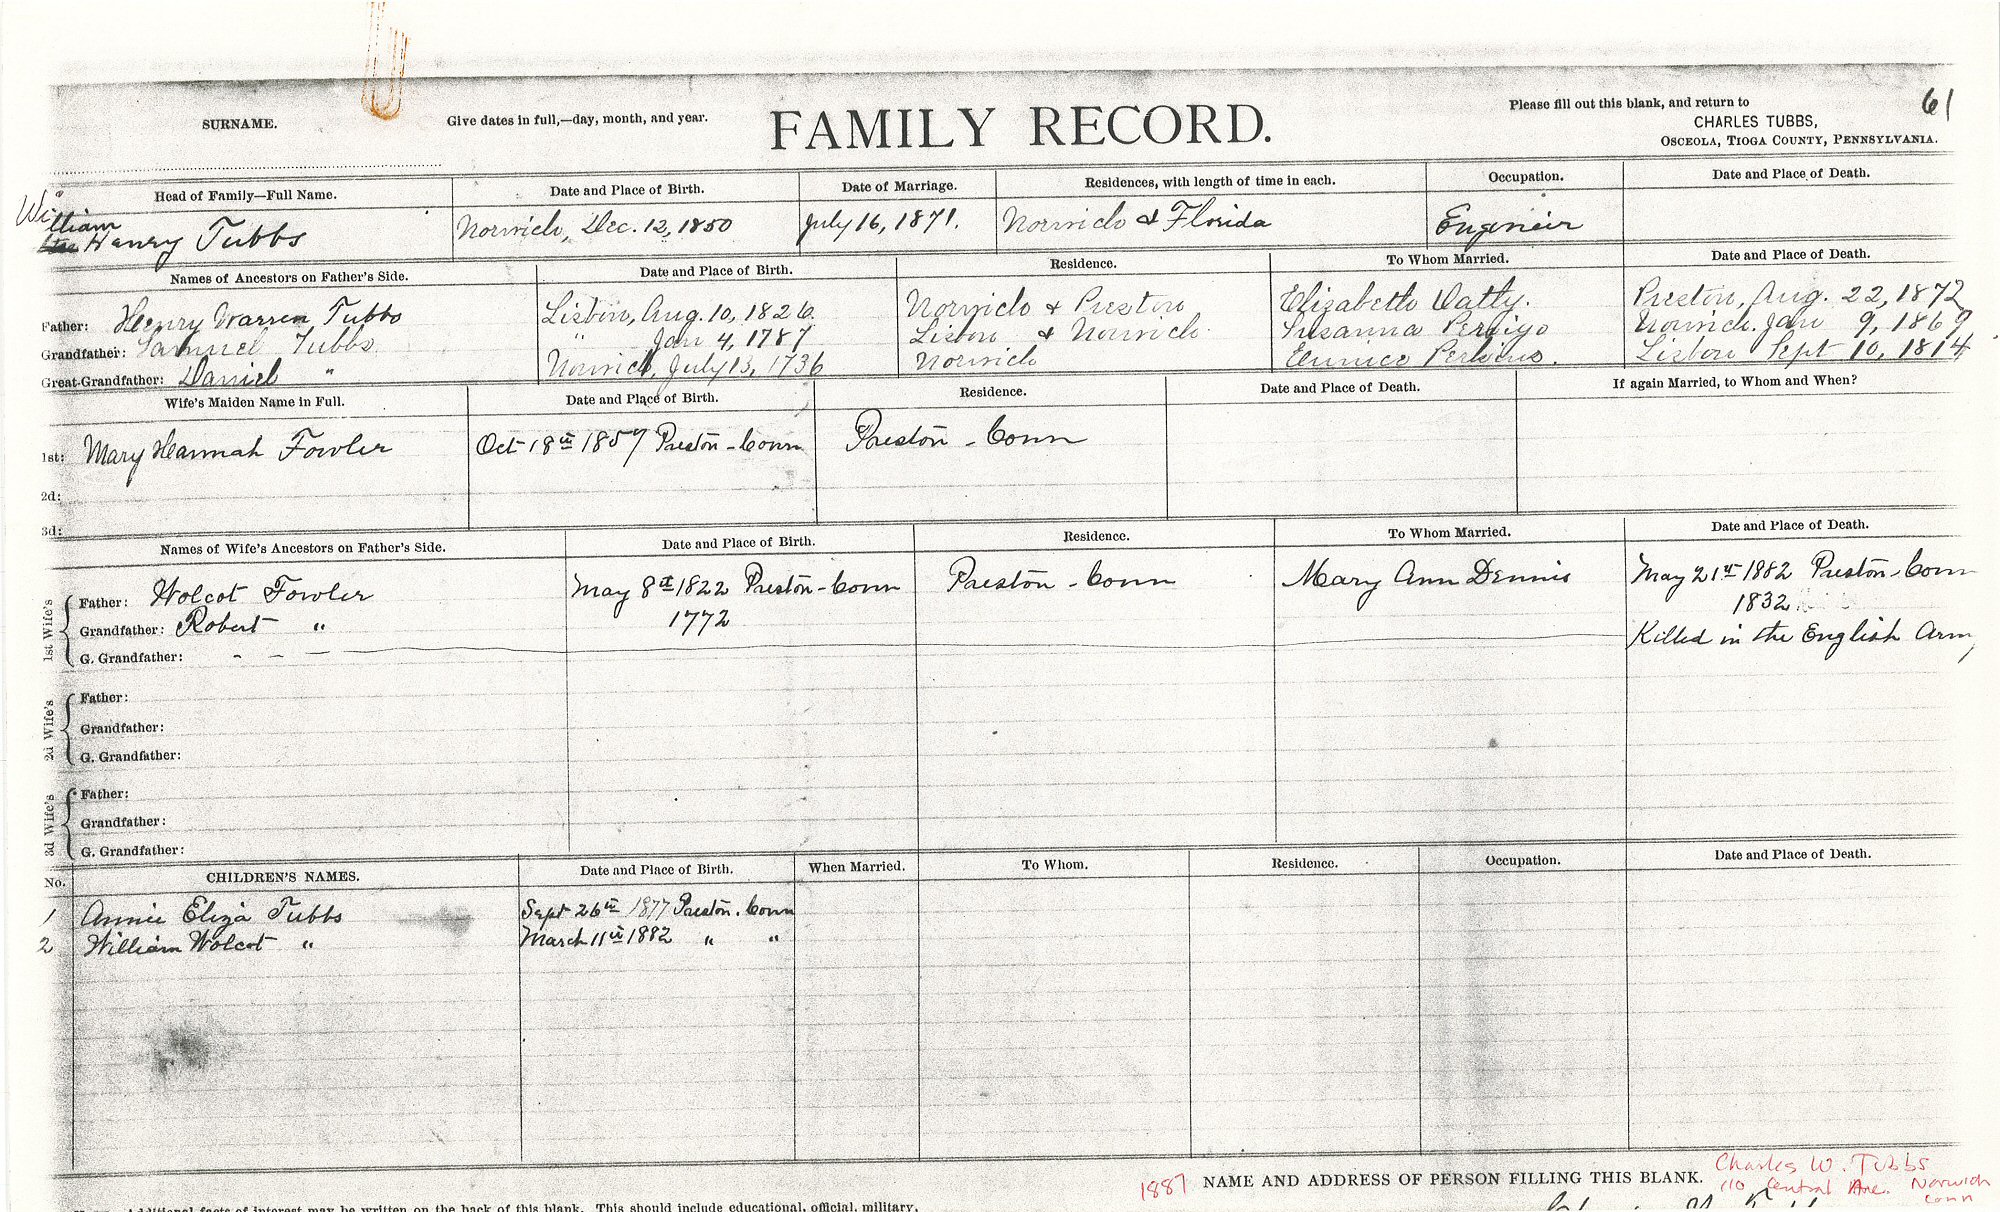 61
SURNAME.
Give dates in full,—day, month, and year.
FAMILY RECORD.
Please fill out this blank, and return to
CHARLES TUBBS,
OSCEOLA, TIOGA COUNTY, PENNSYLVANIA.
Head of Family—Full Name. Date and Place of Birth. Date of Marriage. Residences, with length of time in each. Occupation. Date and Place of Death.
William
Henry Tubbs Norwich, Dec. 12, 1850 July 16, 1871. Norwich & Florida Engineir
Names of Ancestors on Father's Side. Date and Place of Birth. Residence. To Whom Married. Date and Place of Death.
Father: Henry Warren Tubbs Lisbon, Aug. 10, 1826. Norwich & Preston Elizabeth Watty. Preston, Aug. 22, 1872
Grandfather: Samuel Tubbs " Jan 4, 1787 Lisbon & Norwich. Susanna Perigo Norwich. Jan 9, 1869
Great-Grandfather: Daniel " Norwich, July 13, 1736 Norwich Eunice Perkins. Lisbon Sept 10, 1814
Wife's Maiden Name in Full. Date and Place of Birth. Residence. Date and Place of Death. If again Married, to Whom and When?
1st: Mary Hannah Fowler Oct 18th 1857 Preston - Conn Preston - Conn
2d:
3d:
Names of Wife's Ancestors on Father's Side. Date and Place of Birth. Residence. To Whom Married. Date and Place of Death.
1st Wife's
Father: Wolcot Fowler May 8th 1822 Preston - Conn Preston - Conn Mary Ann Dennis May 21st 1882 Preston - Conn
Grandfather: Robert " 1772 1832
G. Grandfather: - - — Killed in the English Army
2d Wife's
Father:
Grandfather:
G. Grandfather:
3d Wife's
Father:
Grandfather:
G. Grandfather:
No. CHILDREN'S NAMES. Date and Place of Birth. When Married. To Whom. Residence. Occupation. Date and Place of Death.
1 Annie Eliza Tubbs Sept 26th 1877 Preston. Conn
2 William Wolcot " March 11th 1882 " "
1887 NAME AND ADDRESS OF PERSON FILLING THIS BLANK. Charles W. Tubbs
110 Central Ave. Norwich
Conn
Additional facts of interest may be written on the back of this blank. This should include educational, official, military,